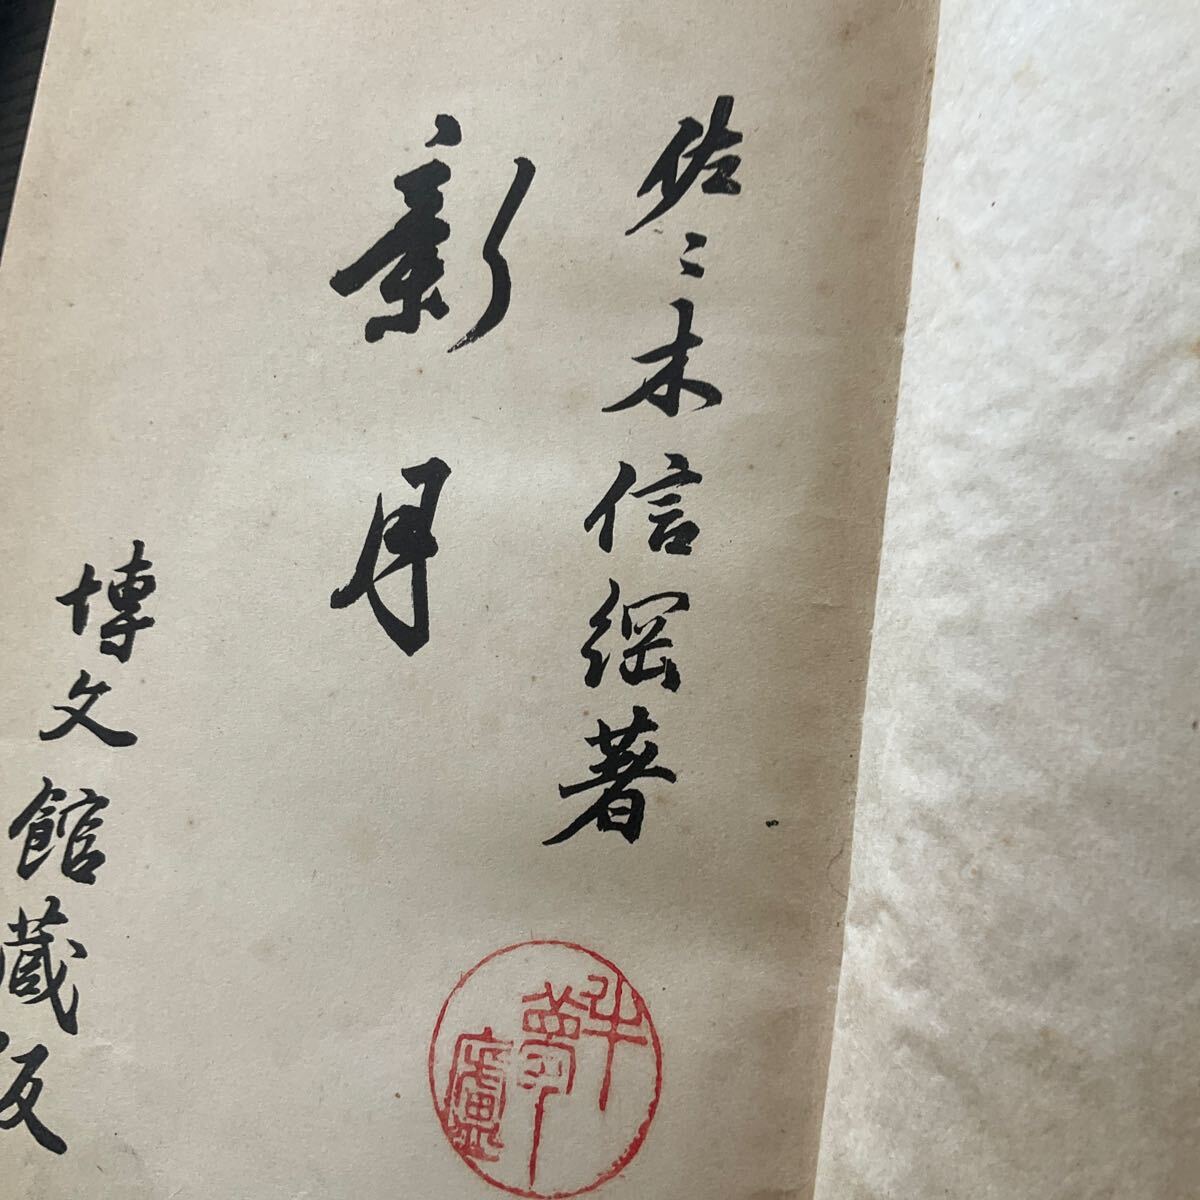 佐々木信綱著
新月
博文館蔵版